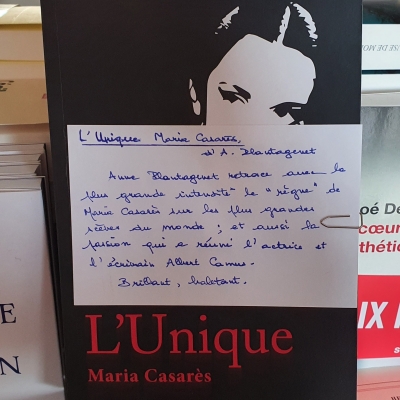 L'Unique Maria Casarès,
d'A. Plantagenet
Anne Plantagenet retrace avec la
plus grande intensité le "règne" de
Maria Casarès sur les plus grandes
scènes du monde ; et aussi la
passion qui a réuni l'actrice et
l'écrivain Albert Camus.
Brillant, haletant.
L'Unique
Maria Casarès
E
N
oé De
cœur
thétic
IX